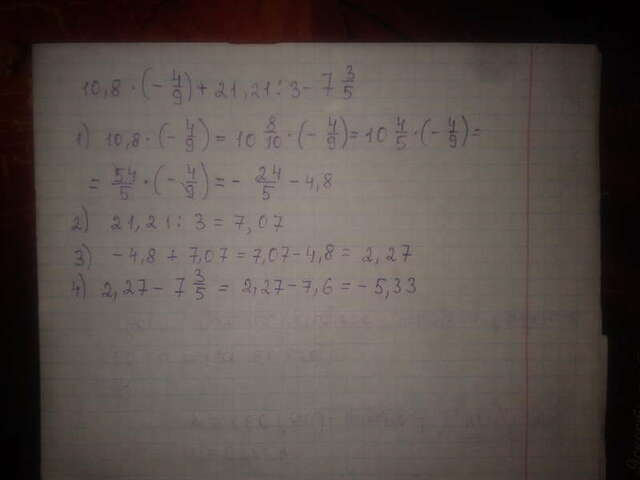 10,8 · (- 4/9) + 21,21 : 3 - 7 3/5
1) 10,8 · (- 4/9) = 10 8/10 · (- 4/9) = 10 4/5 · (- 4/9) =
= 54/5 · (- 4/9) = - 24/5 - 4,8
2) 21,21 : 3 = 7,07
3) -4,8 + 7,07 = 7,07 - 4,8 = 2,27
4) 2,27 - 7 3/5 = 2,27 - 7,6 = -5,33